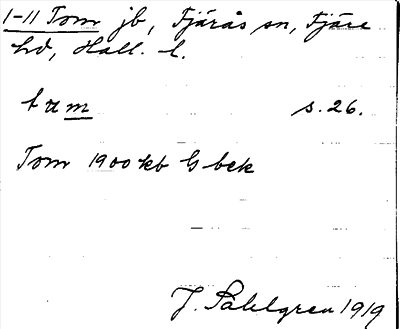 1-11 Tom jb, Fjärås sn, Fjäre
hd, Hall. l.
tɷm s. 26.
Tom 1900 kb G bek
J. Sahlgren 1919